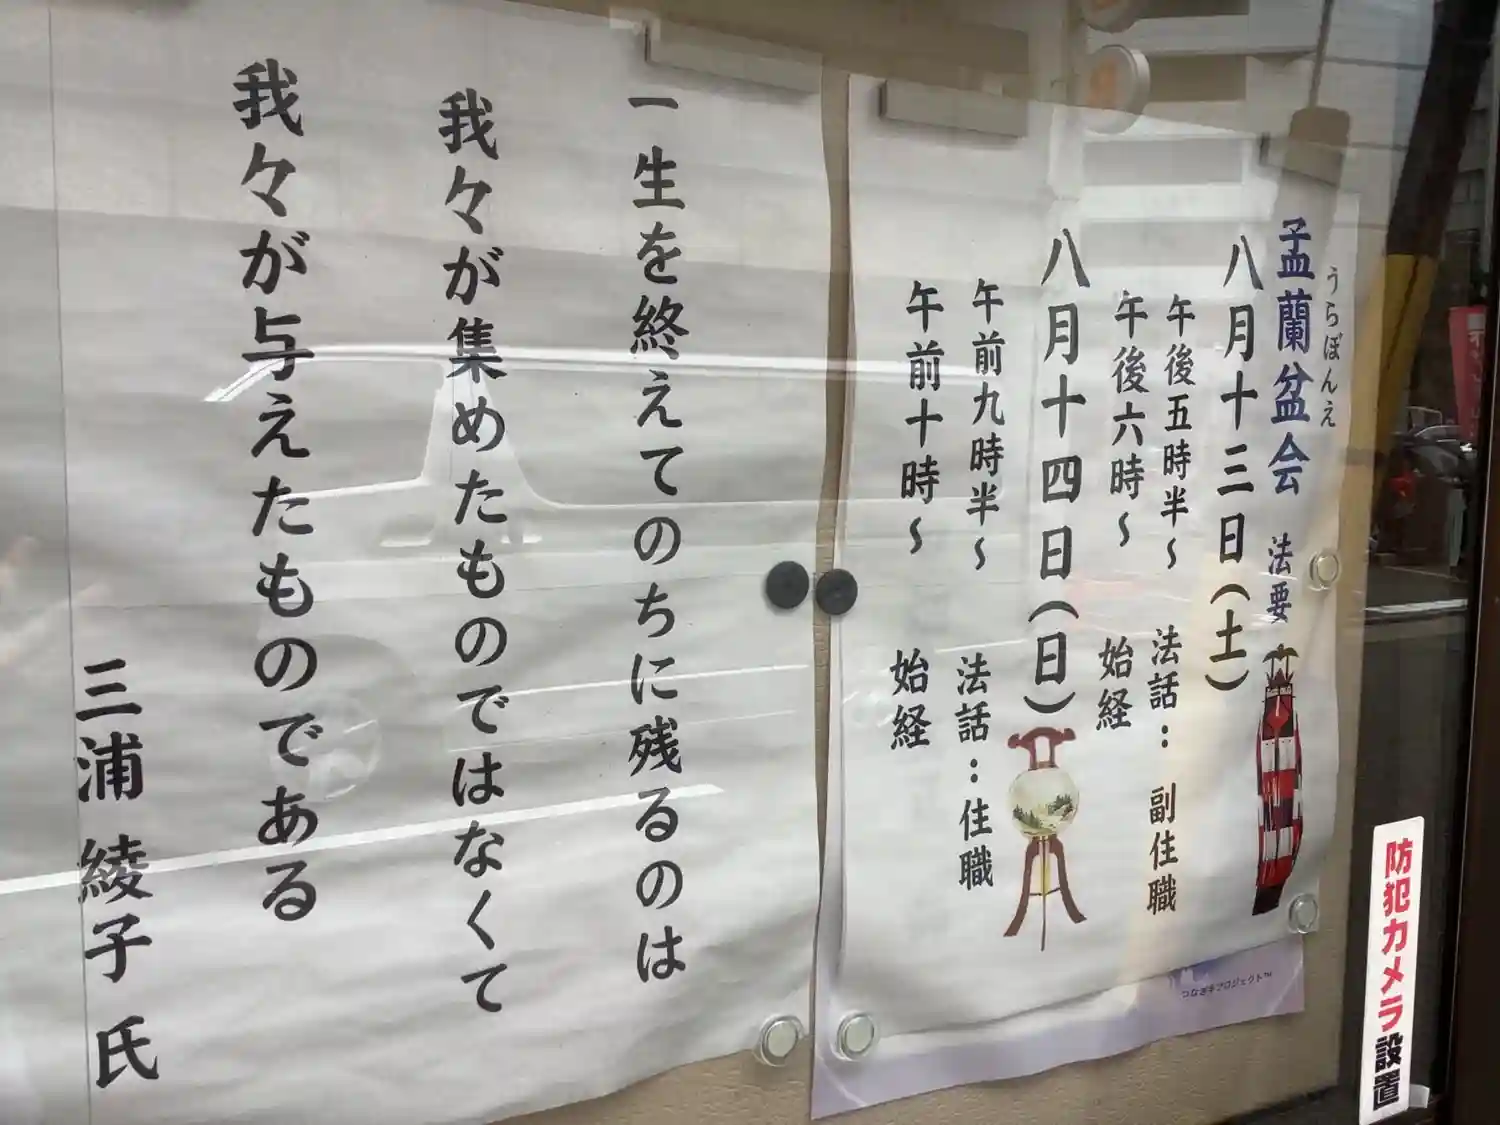 うらぼんえ
孟蘭盆会 法要
八月十三日(土)
午後五時半～ 法話：副住職
午後六時～ 始経
八月十四日(日)
午前九時半～ 法話：住職
午前十時～ 始経
つなぎ手プロジェクト™
一生を終えてのちに残るのは
我々が集めたものではなくて
我々が与えたものである
三浦 綾子 氏
防犯カメラ設置